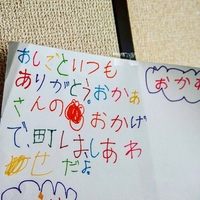 おしごといつも
ありがとう。おかあ
さんの おかげ
で、町しおしあわ
せだよ
おかあ